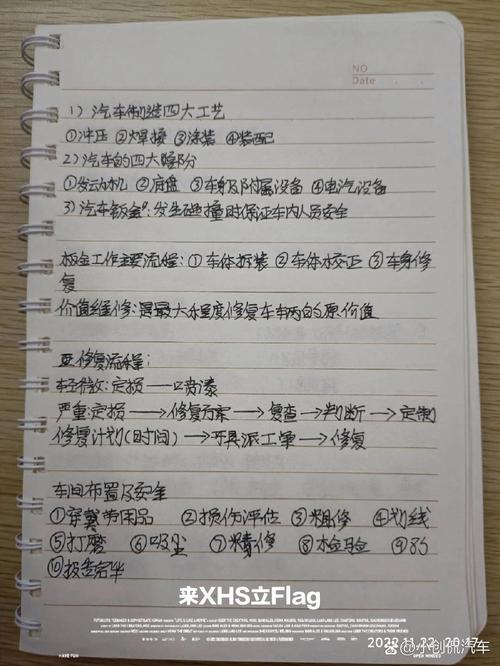 NO
Date
1) 汽车制造四大工艺
①冲压 ②焊接 ③涂装 ④装配
2) 汽车的四大部分
①发动机 ②底盘 ③车身及附属设备 ④电汽设备
3) 汽车钣金:发生碰撞时保证车内人员安全
钣金工作主要流程:①车体拆装 ②车体校正 ③车身修
复
价值维修:是最大程度修复车辆的原价值
修复流程:
轻微:定损——喷漆
严重:定损→修复方案→复查→判断→定制
修复计划(时间)→开具派工单→修复
车间布置及安全
①穿戴劳用品 ②损伤评估 ③粗修 ④划线
⑤打磨 ⑥吸尘 ⑦精修 ⑧检验 ⑨
⑩钣金完毕
来XHS立Flag
2022.11.22 20:17